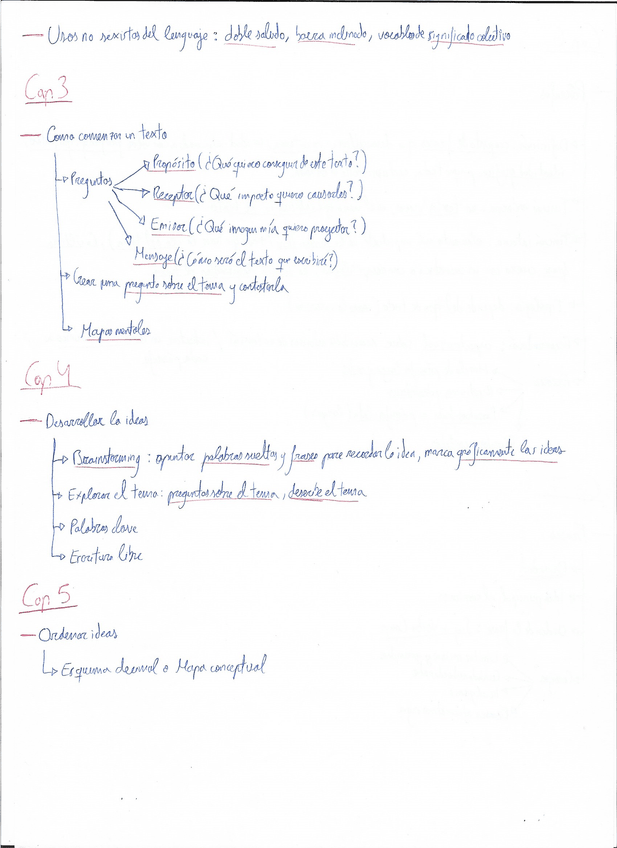 — Usos no sexistas del lenguaje : doble saludo, barra inclinada, vocablos de significado colectivo
Cap. 3
— Como comenzar un texto
Preguntas
Propósito (¿Qué quiero conseguir de este texto?)
Receptor (¿Qué impacto quiero causarles?)
Emisor (¿Qué imagen mía quiero proyectar?)
Mensaje (¿Cómo será el texto que escribiré?)
Crear una pregunta sobre el tema y contestarla
Mapas mentales
Cap 4
— Desarrollar la ideas
Brainstorming : apuntar palabras sueltas y frases para recordar la idea, marca gráficamente las ideas
Explorar el tema: preguntas sobre el tema, describe el tema
Palabras clave
Escritura libre
Cap 5
— Ordenar ideas
Esquema decimal o Mapa conceptual